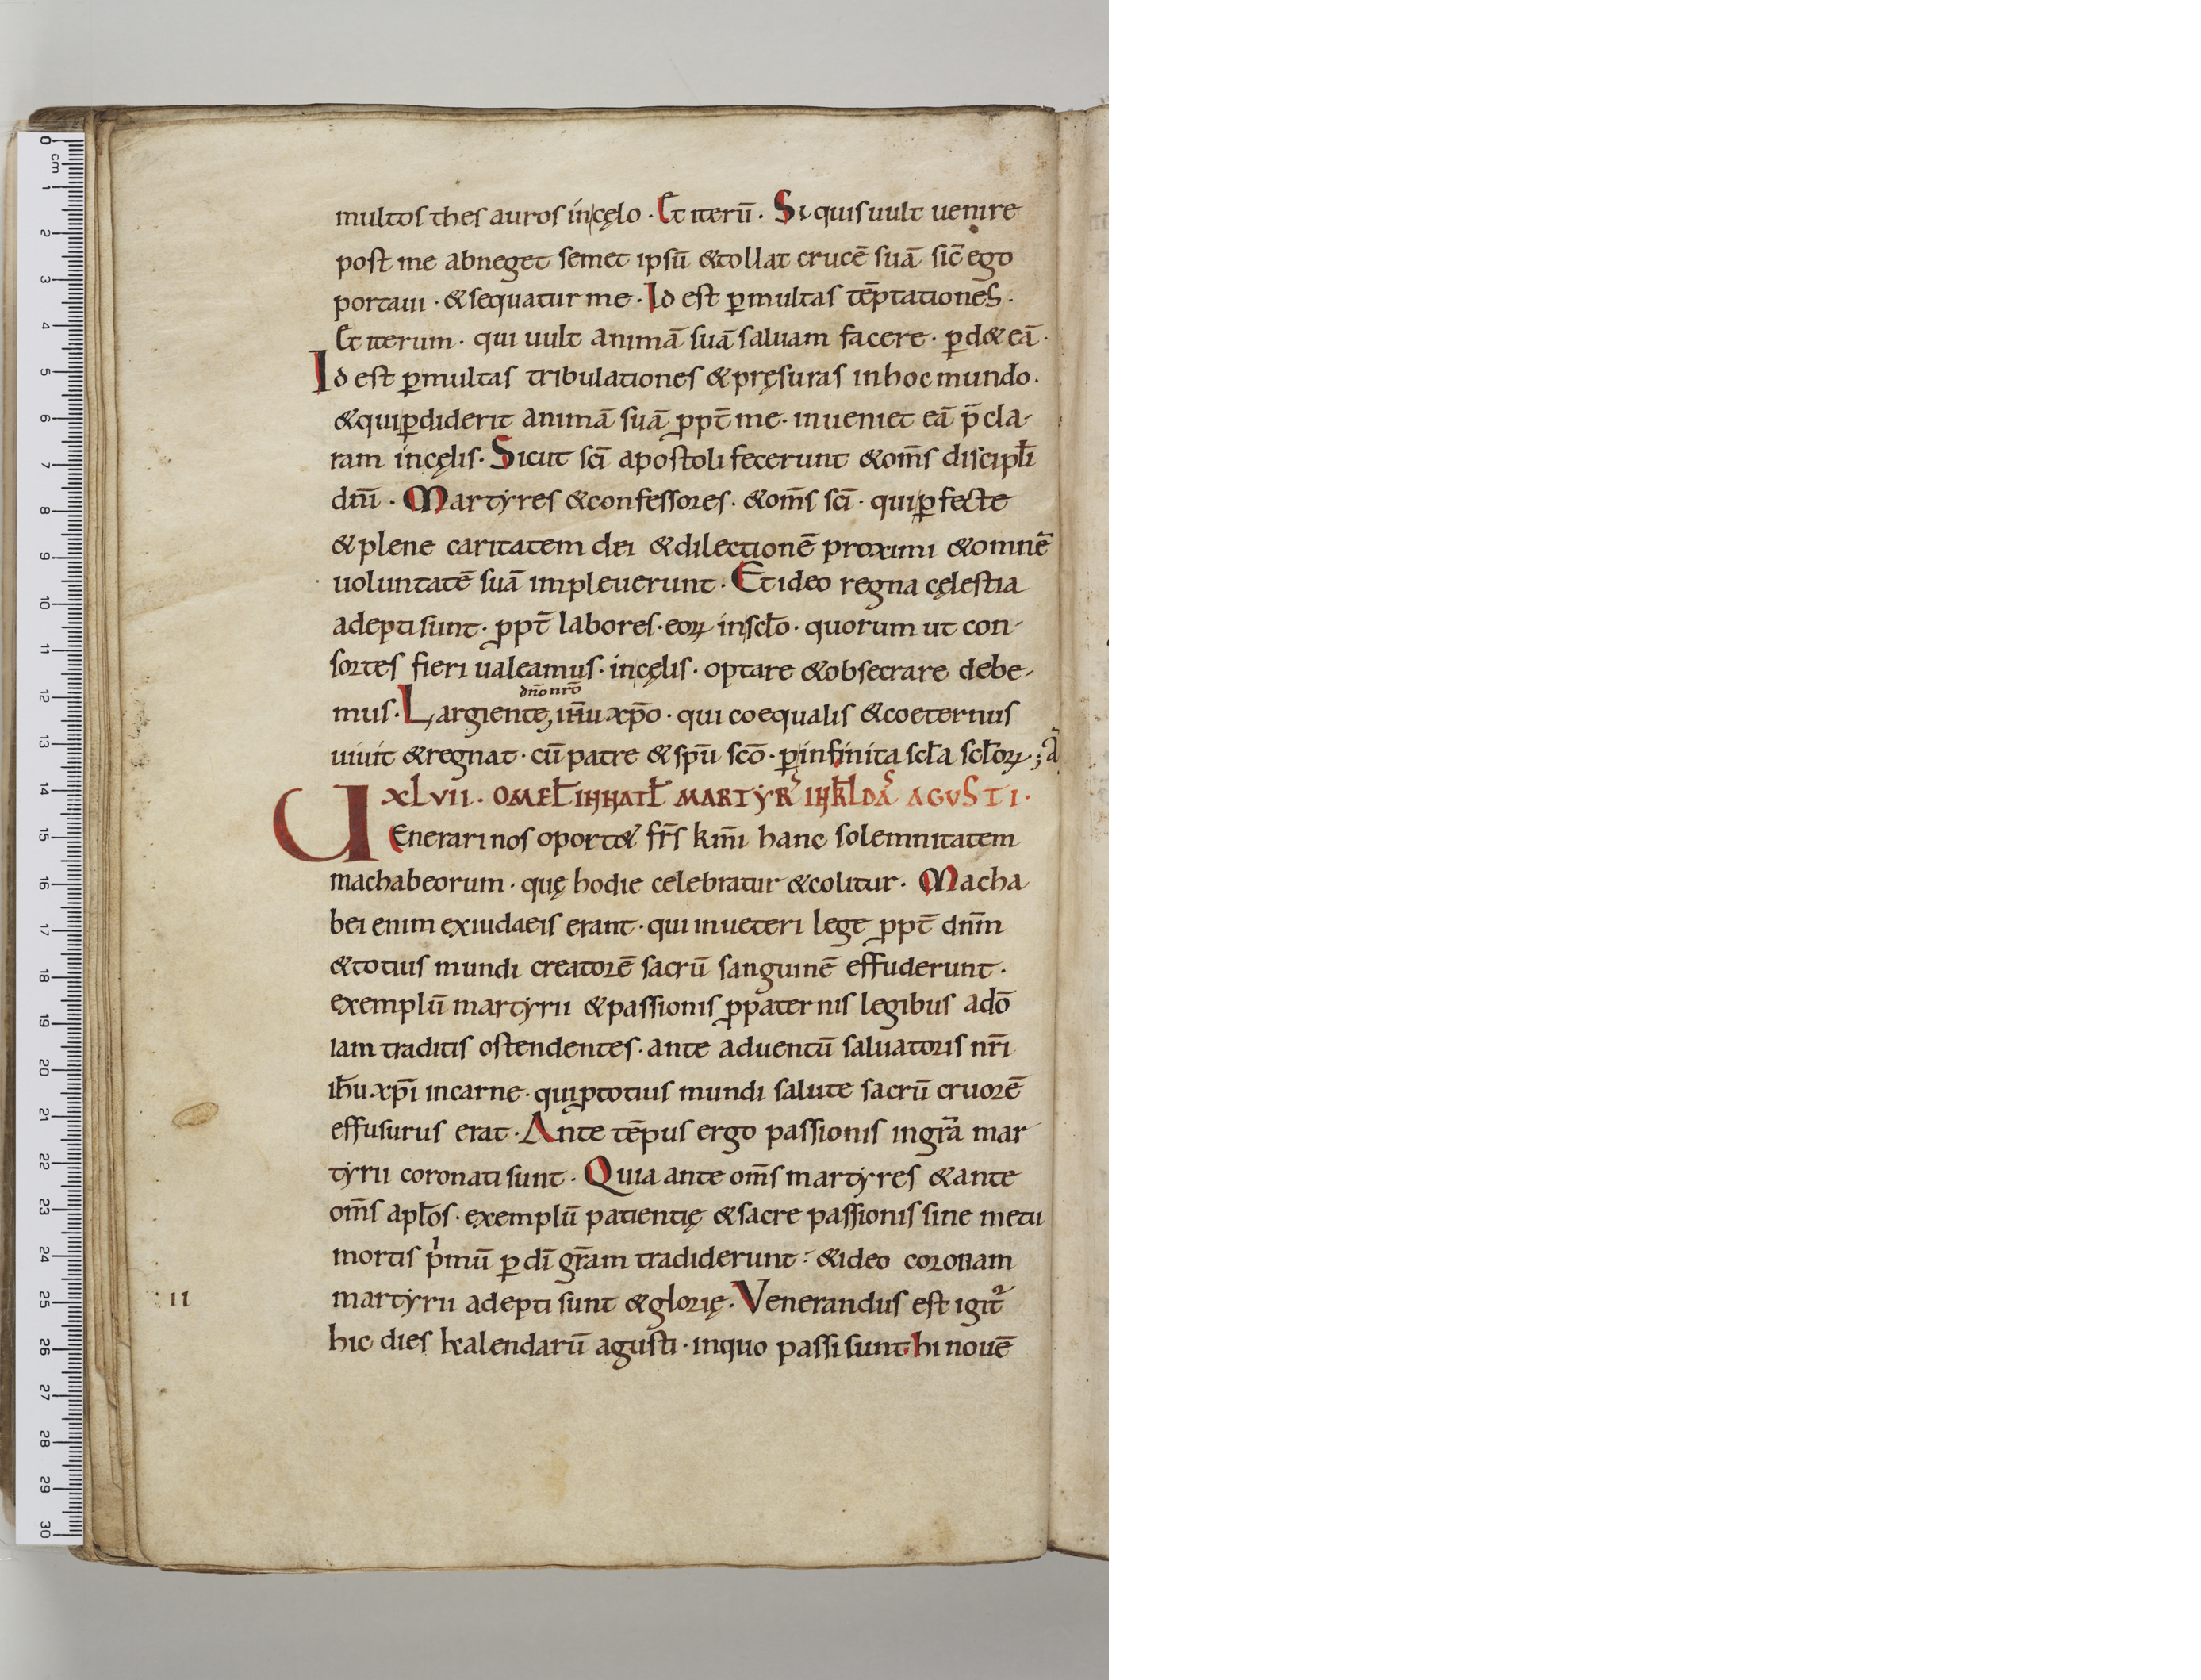 multos thesauros in cęlo · Et iterū · Si quis uult uenire
post me abneget semet ipsū & tollat crucē suā sic̄ ego
portaui · & sequatur me · Id est ꝑ multas tēptationes ·
Et iterum · qui uult animā suā saluam facere · ꝑd& eā ·
Id est ꝑ multas tribulationes & pręsuras in hoc mundo ·
& qui ꝑdiderit animā suā ꝓpt̄ me · inueniet eā p̄cla-
ram in cęlis · Sicut sc̄i apostoli fecerunt & om̄s discipłi
dn̄i · Martyres & confessores · & om̄s sc̄i · qui ꝑfecte
& plene caritatem dei & dilectionē proximi & omnē
uoluntatē suā impleuerunt · Et ideo regna cęlestia
adepti sunt · ꝓpt̄ labores · eoꝝ in scło · quorum ut con-
sortes fieri ualeamus · in cęlis · optare & obsecrare debe-
dn̄o nr̄o
mus · Largiente, ih̄u xp̄o · qui coequalis & coeternus
uiuit & regnat · cū patre & sp̄u sc̄o · ꝑ infinita scła scłoꝝ ; ā
xlvii · OMEŁ IN NATŁ MARTYR̄ IN KŁDAS̄ AGUSTI ·
UEnerari nos oport& fr̄s km̄i hanc solemnitatem
machabeorum · quę hodie celebratur & colitur · Macha
bei enim ex iudaeis erant · qui in ueteri lege ꝓpt̄ dn̄m
& totius mundi creatorē sacrū sanguinē effuderunt ·
exemplū martyrii & passionis ꝓ paternis legibus a dō
iam traditis ostendentes · ante aduentū saluatoris nr̄i
ih̄u xp̄i in carne · qui ꝓ totius mundi salute sacrū cruorē
effusurus erat · Ante tēpus ergo passionis in gr̄a mar
tyrii coronati sunt · Quia ante om̄s martyres & ante
om̄s apłos · exemplū patientię & sacre passionis sine metu
mortis pͥmū ꝑ dī gr̄am tradiderunt · & ideo coronam
11 martyrii adepti sunt & glorię · Venerandus est igit̄
hic dies kalendarū agusti · in quo passi sunt hi nouē
0 cm 1 2 3 4 5 6 7 8 9 10 11 12 13 14 15 16 17 18 19 20 21 22 23 24 25 26 27 28 29 30